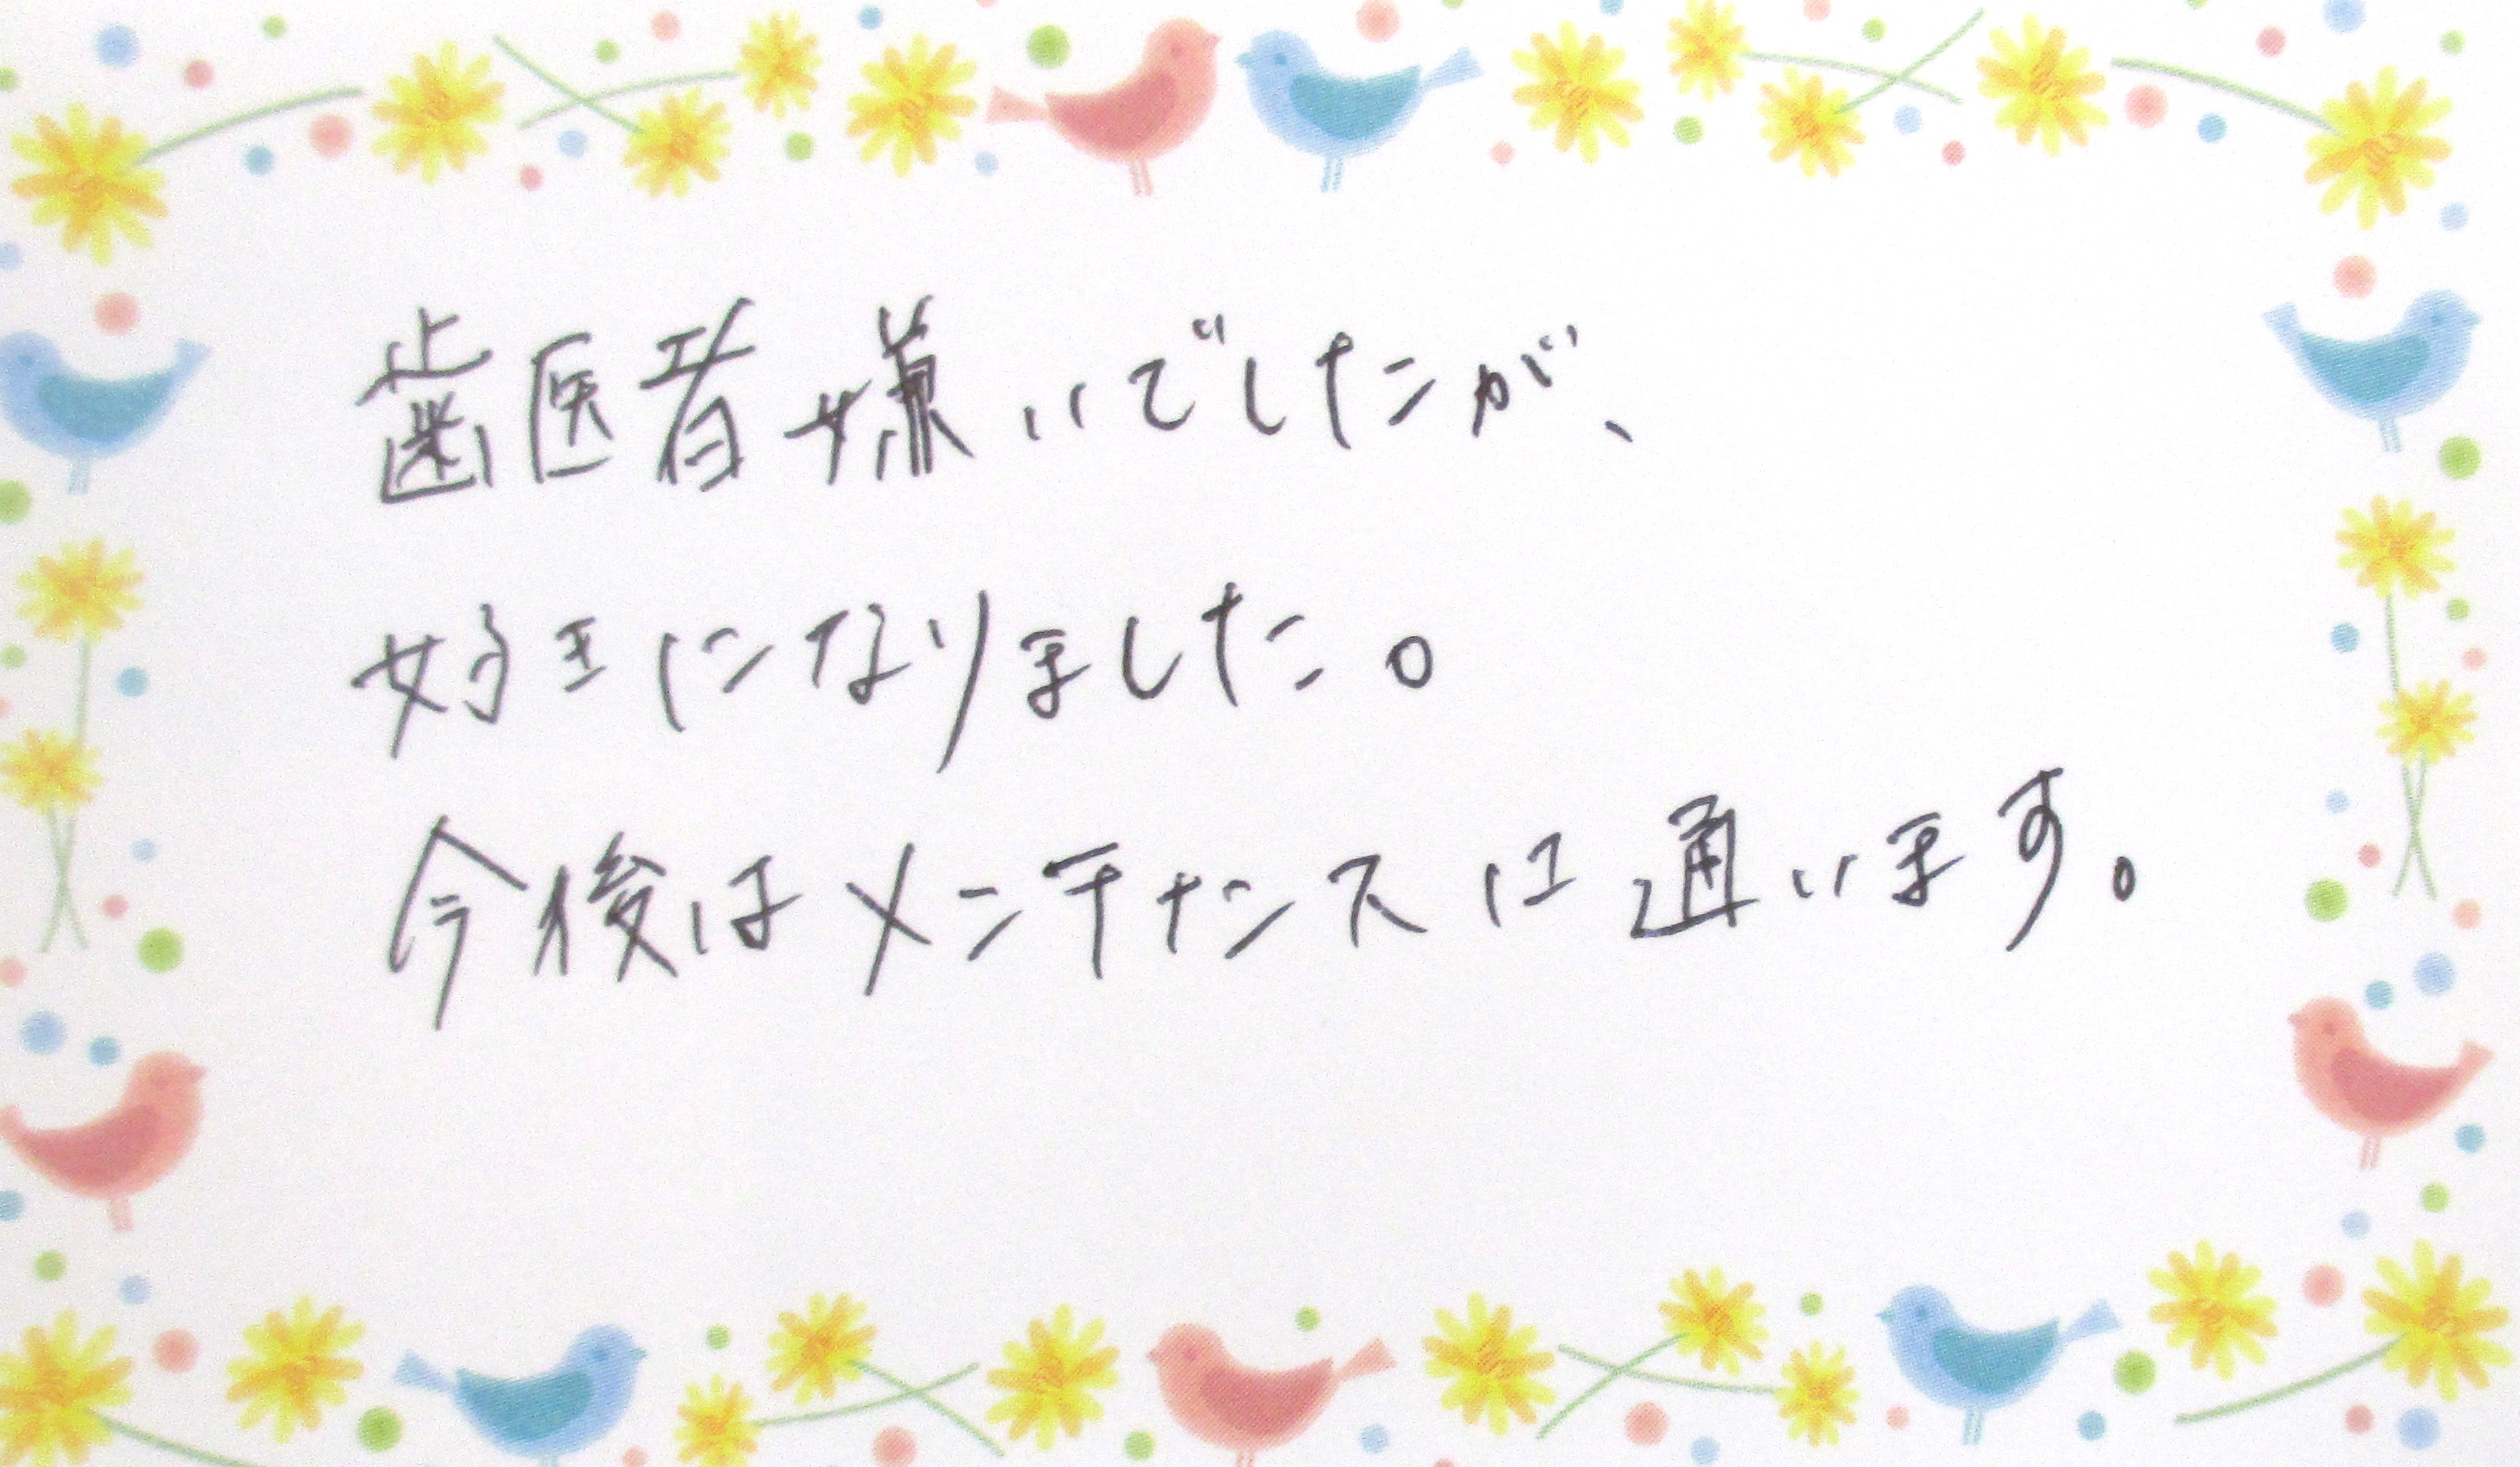 歯医者嫌いでしたが、
好きになりました。
今後はメンテナンスに通います。